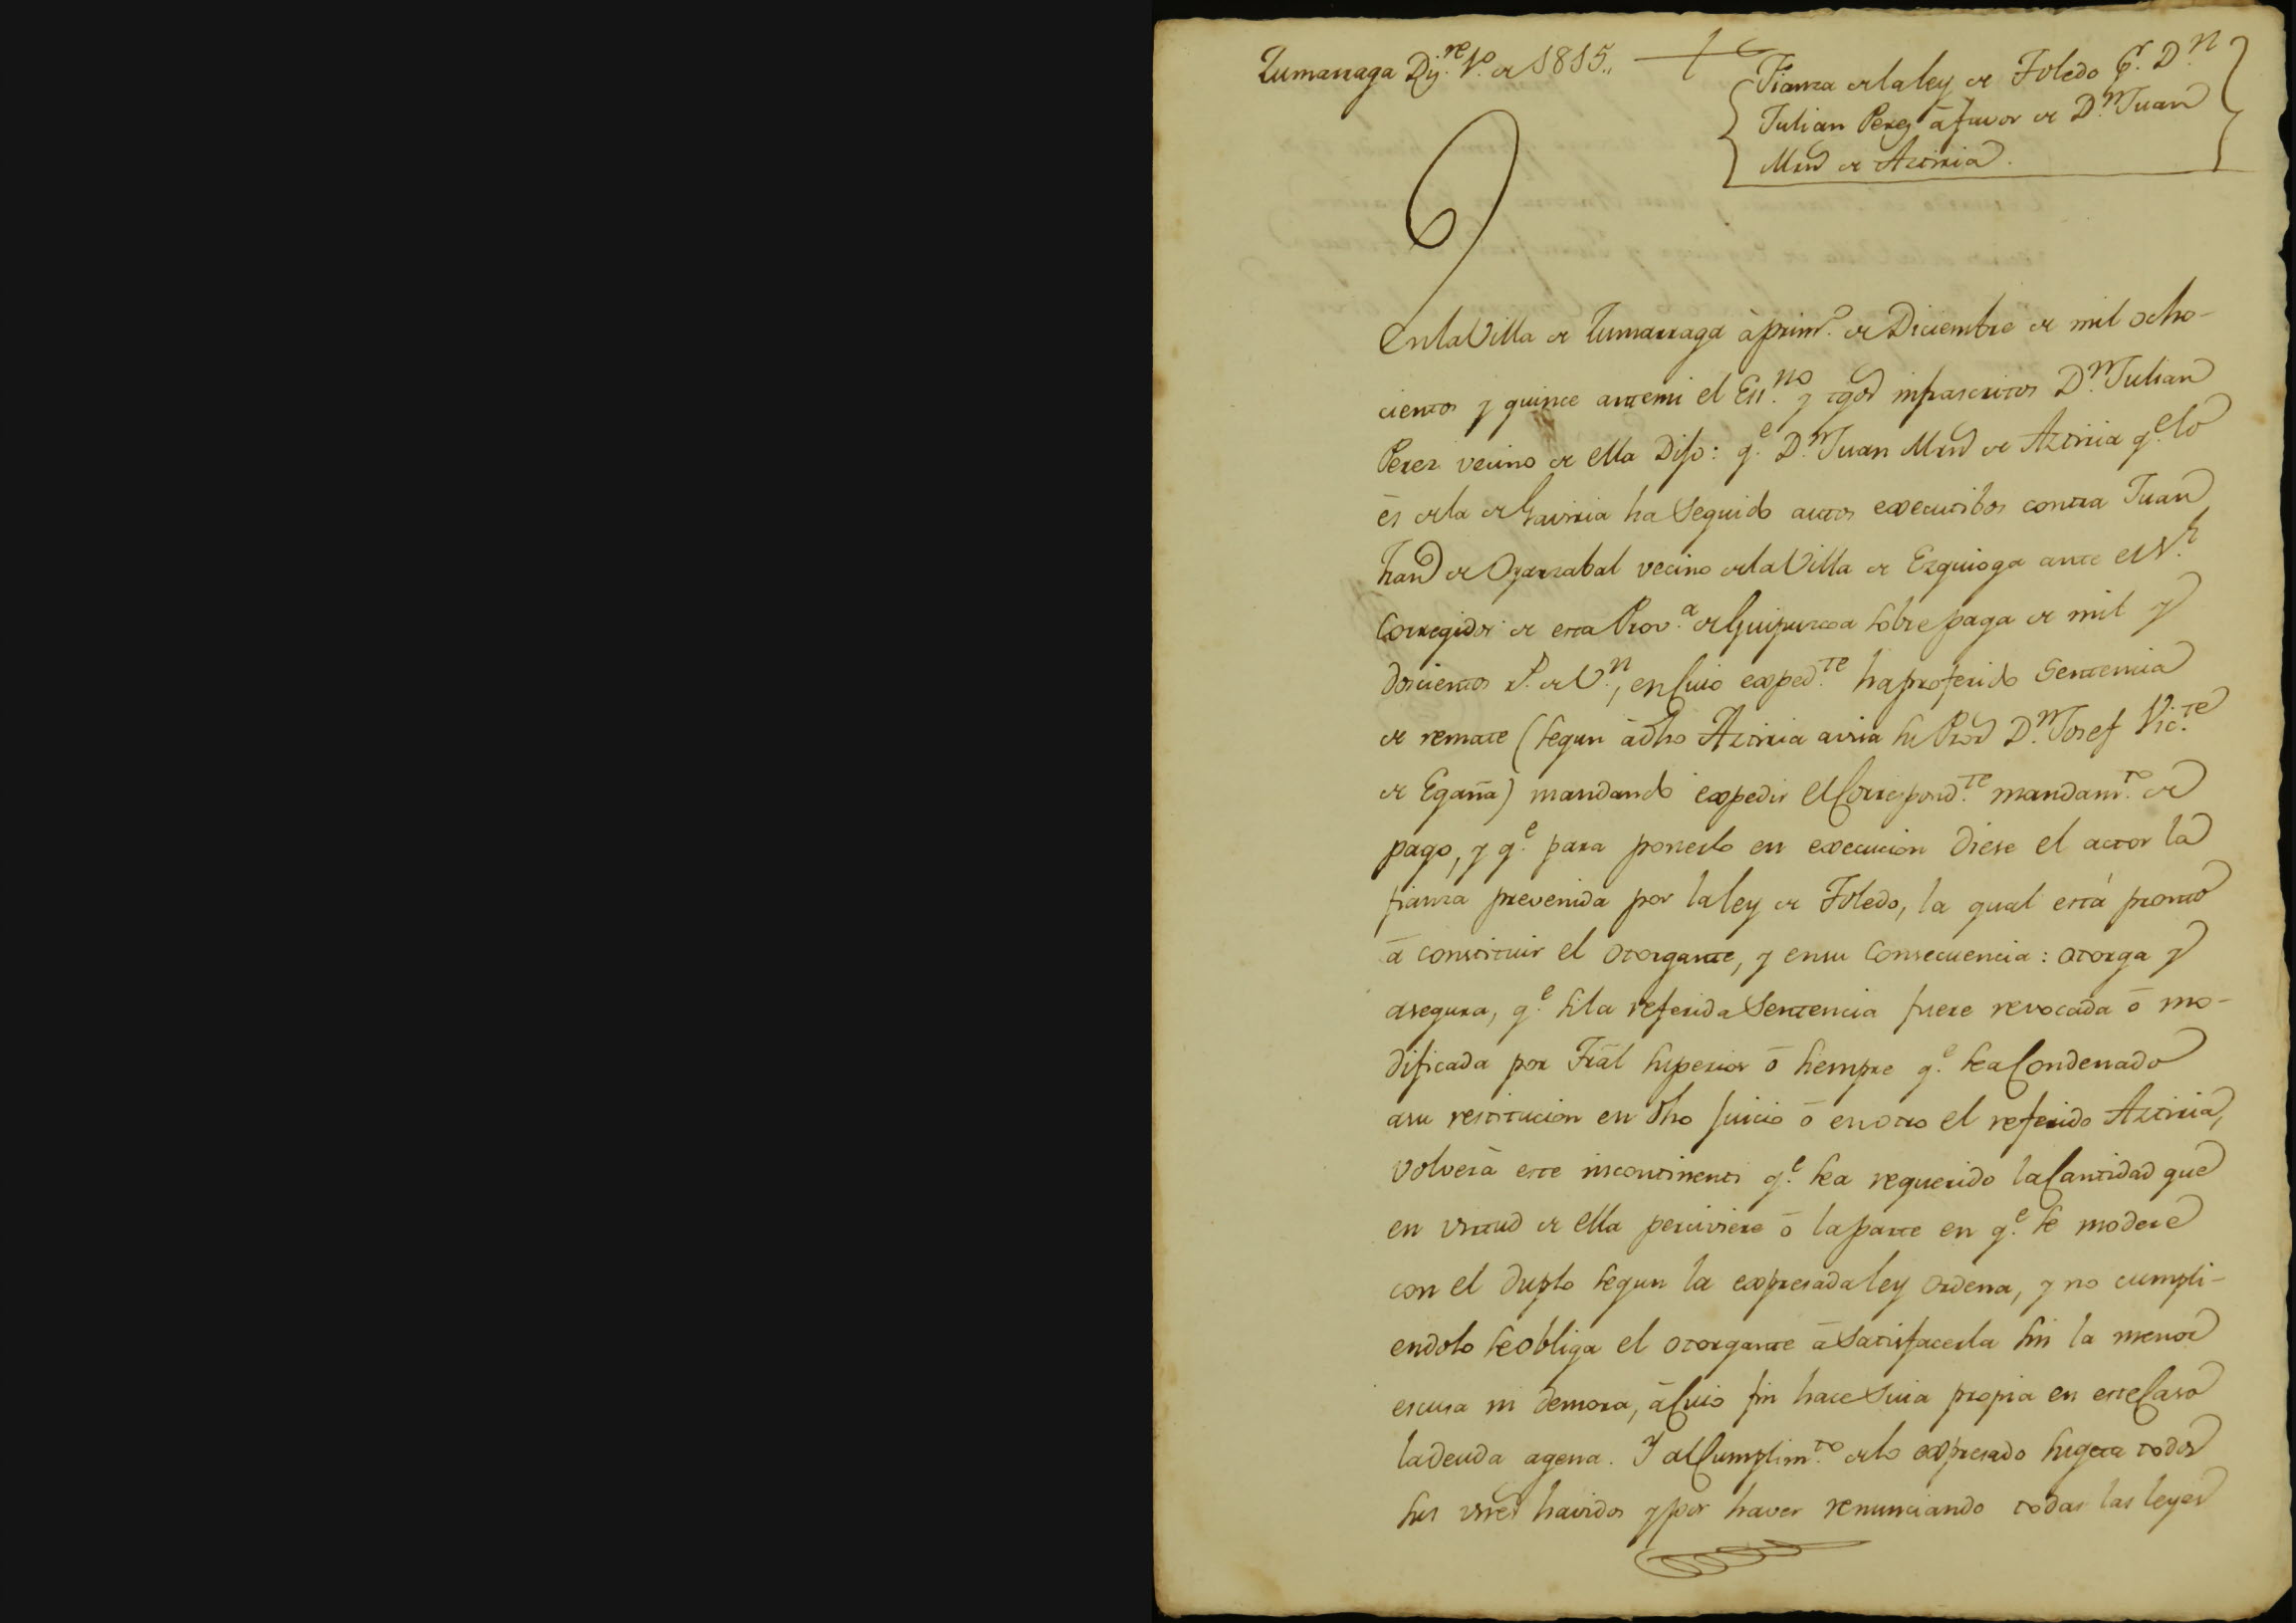 Zumarraga Diz.re 1.o de 1815.,
Fianza dela ley de Toledo p.r D.n
Julian Perez á favor de D.n Juan
Mrn de Aztiria.
En la Villa de Zumarraga à prim.o de Diciembre de mil ocho-
cientos y quince ante mi el Ess.no y tgos infrascritos D.n Julian
Perez vecino de ella Dijo: q.e D.n Juan Mrn de Aztiria q.e lo
és dela de Gaviria ha seguido autos executibos contra Juan
Fran de Oyarzabal vecino dela Villa de Ezquioga ante el S.r
Corregidor de esta Prov.a de Guipuzcoa sobre paga de mil y
doscientos r.s de V.n, en cuio exped.te ha proferido Sentencia
de remate (segun á dho Aztiria avisa su Pror D.n Josef Vic.te
de Egaña) mandando expedir el Correspond.te mandam.to de
pago, y q.e para ponerlo en execucion diese el actor la
fianza prevenida por la ley de Toledo, la qual está pronto
á constituir el otorgante, y en su Consecuencia: otorga y
asegura, q.e si la referida Sentencia fuere revocada ó mo-
dificada por Tràl superior ó siempre q.e sea Condenado
a su restitucion en dho Juicio ó en otro el referido Aztiria,
volverá este incontinenti q.e sea requerido la Cantidad que
en virtud de ella perciviere ó la parte en q.e se modere
con el duplo segun la expresada ley ordena, y no cumpli-
endolo se obliga el otorgante á satisfacerla sin la menor
escusa ni demora, á Cuio fin hace suia propia en este Caso
la deuda agena. Y al Cumplim.to delo expresado sugeta todos
sus vnes havidos y por haver renunciando todas las leyes